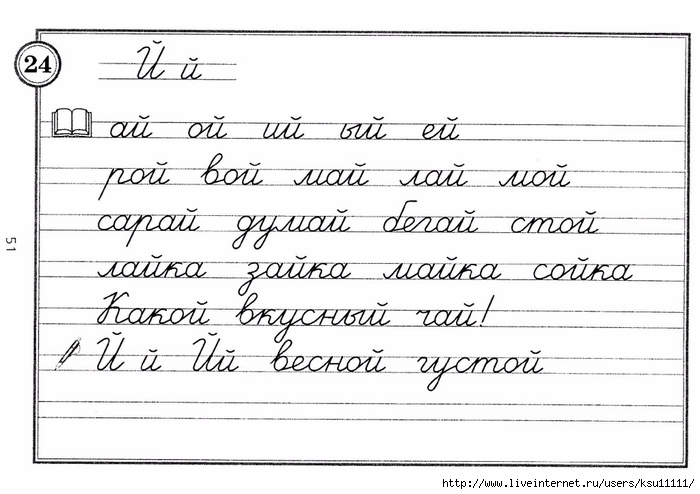 24 Й й
ай ой ий ый ей
рой вой май лай мой
сарай думай бегай стой
лайка зайка майка сойка
Какой вкусный чай!
Й й Йй весной густой
51
http://www.liveinternet.ru/users/ksu11111/